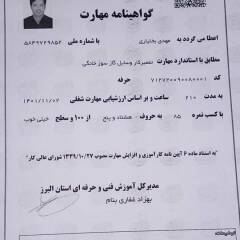 گواهینامه مهارت
اعطا می گردد به مهدی بختیاری با شماره ملی ۵۸۲۹۷۲۹۸۵۲
مطابق با استاندارد مهارت تعمیرکار وسایل گاز سوز خانگی
کد ۷۱۲۷۲۰۰۹۰۰۸۰۰۰۱ حرفه
به مدت ۲۱۰ ساعت و بر اساس ارزشیابی مهارت شغلی ۱۴۰۱/۱۱/۰۲
با کسب نمره ۸۵ به حروف هشتاد و پنج از ۱۰۰ و سطح خیلی خوب
به استناد ماده ۶ آیین نامه کارآموزی و افزایش مهارت مصوب ۱۳۴۹/۱۰/۲۷ شورای عالی کار
مدیرکل آموزش فنی و حرفه ای استان البرز
بهزاد غفاری بنام